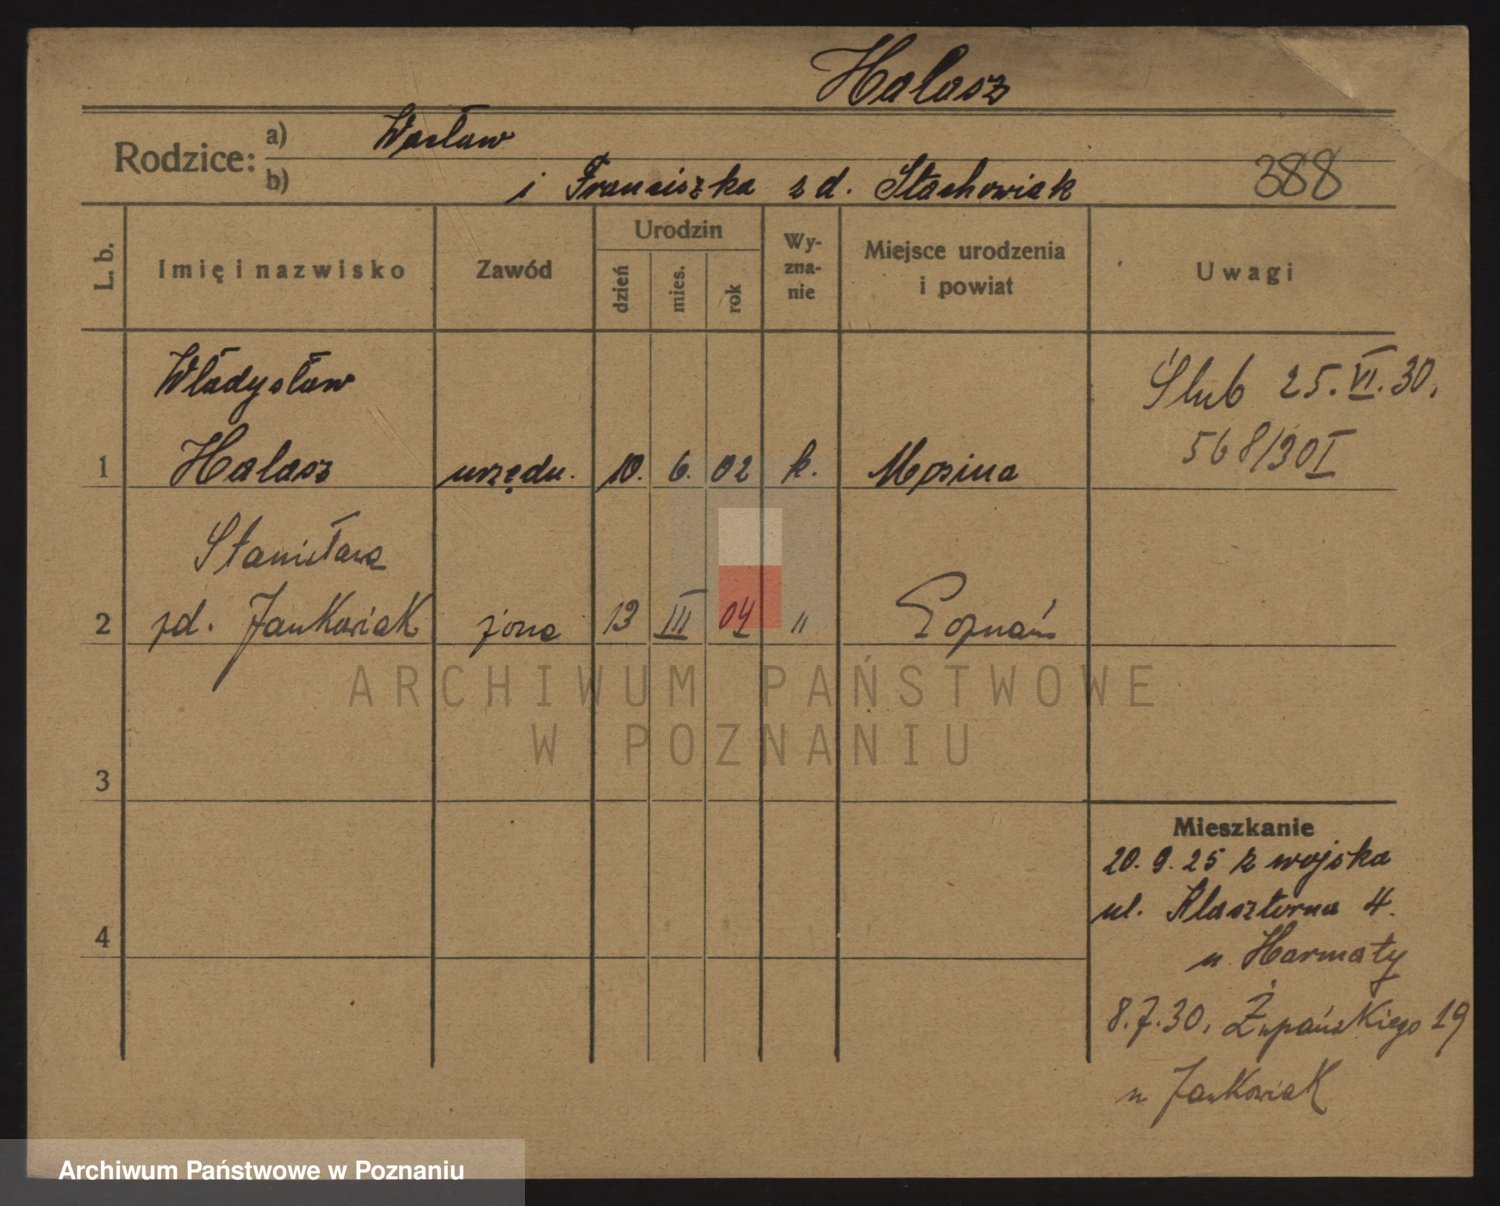 Halasz
Rodzice: a) Wacław
b) i Franciszka z d. Stachowiak
388
L. b. Imię i nazwisko Zawód Urodzin dzień mies. rok Wy-zna-nie Miejsce urodzenia i powiat Uwagi
Władysław
1 Halasz urzędn. 10. 6. 02 k. Mosina
Ślub 25.VI.30.
568/30 I
Stanisława
2 zd. Jankowiak żona 13 III 04 " Poznań
ARCHIWUM PAŃSTWOWE
W POZNANIU
3
4
Mieszkanie
20. 9. 25 z wojska
ul. Klasztorna 4.
u. Harmaty
8.7.30. Żupańskiego 19
u Jankowiak
Archiwum Państwowe w Poznaniu